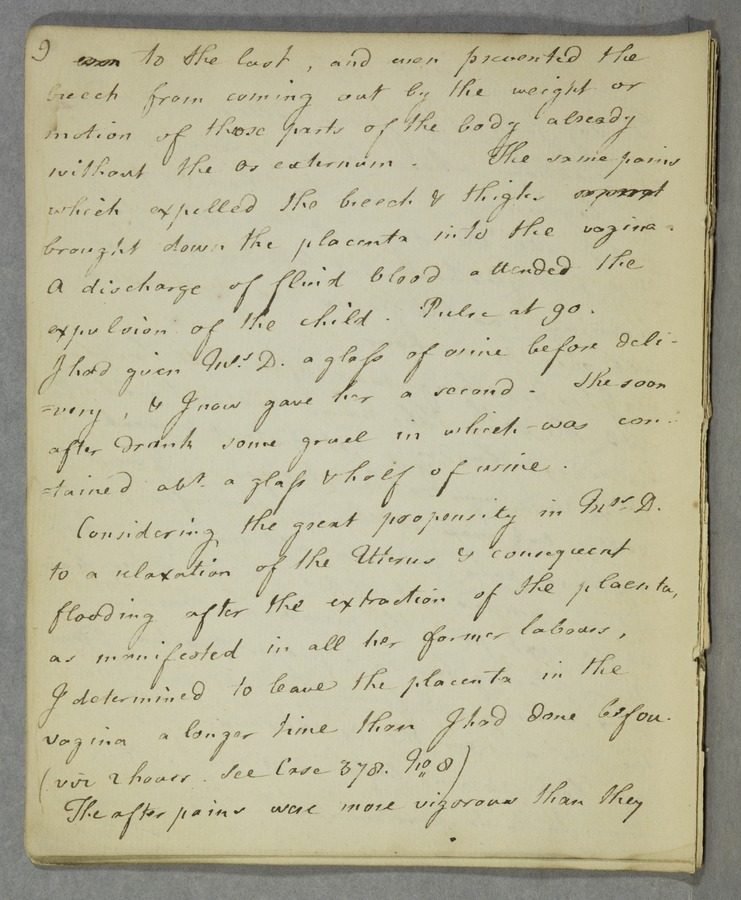 9
to the last, and even prevented the
breech from coming out by the weight or
motion of those parts of the body already
without the os externum. The same pains
which expelled the breech & thighs
brought down the placenta into the vagina.
A discharge of fluid blood attended the
expulsion of the child. Pulse at 90.
I had given Mrs D. a glass of wine before deli-
=very, & I now gave her a second. She soon
after drank some gruel in which was con-
=tained abt. a glass & half of wine.
Considering the great propensity in Mrs D.
to a relaxation of the Uterus & consequent
flooding after the extraction of the placenta,
as manifested in all her former labours,
I determined to leave the placenta in the
vagina a longer time than I had done before.
(viz 2 hours. See Case 378. No 8)
The after pains were more vigorous than they